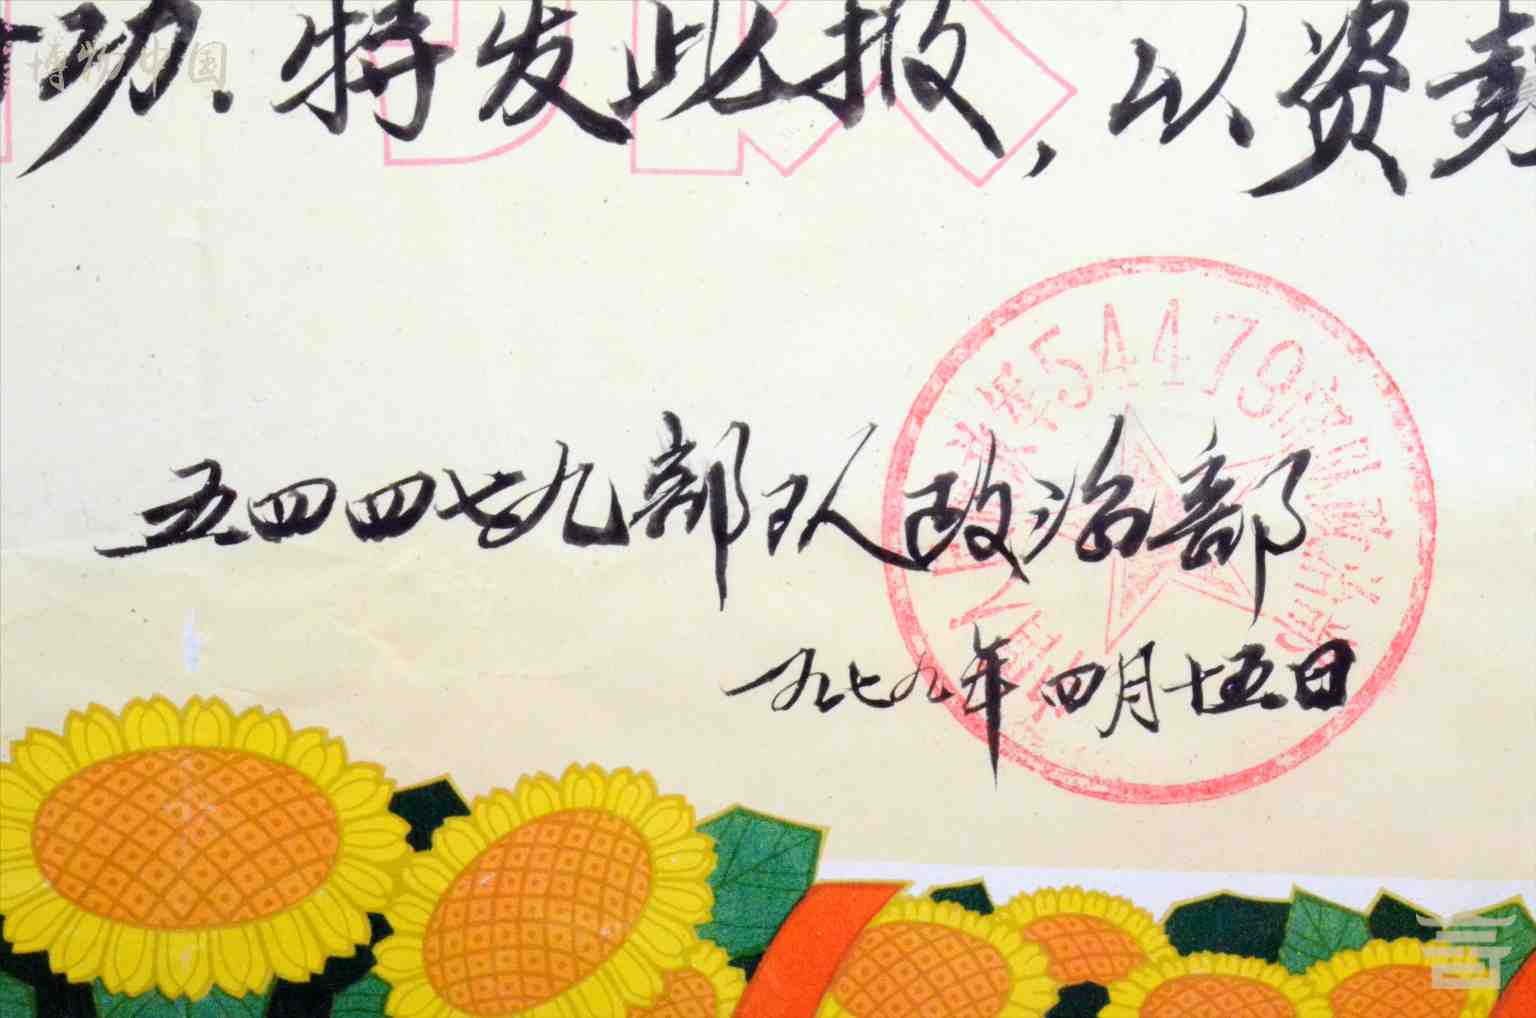 功、特发此报，以资
五四四七九部队政治部
一九七九年四月十五日
54479
博物中国